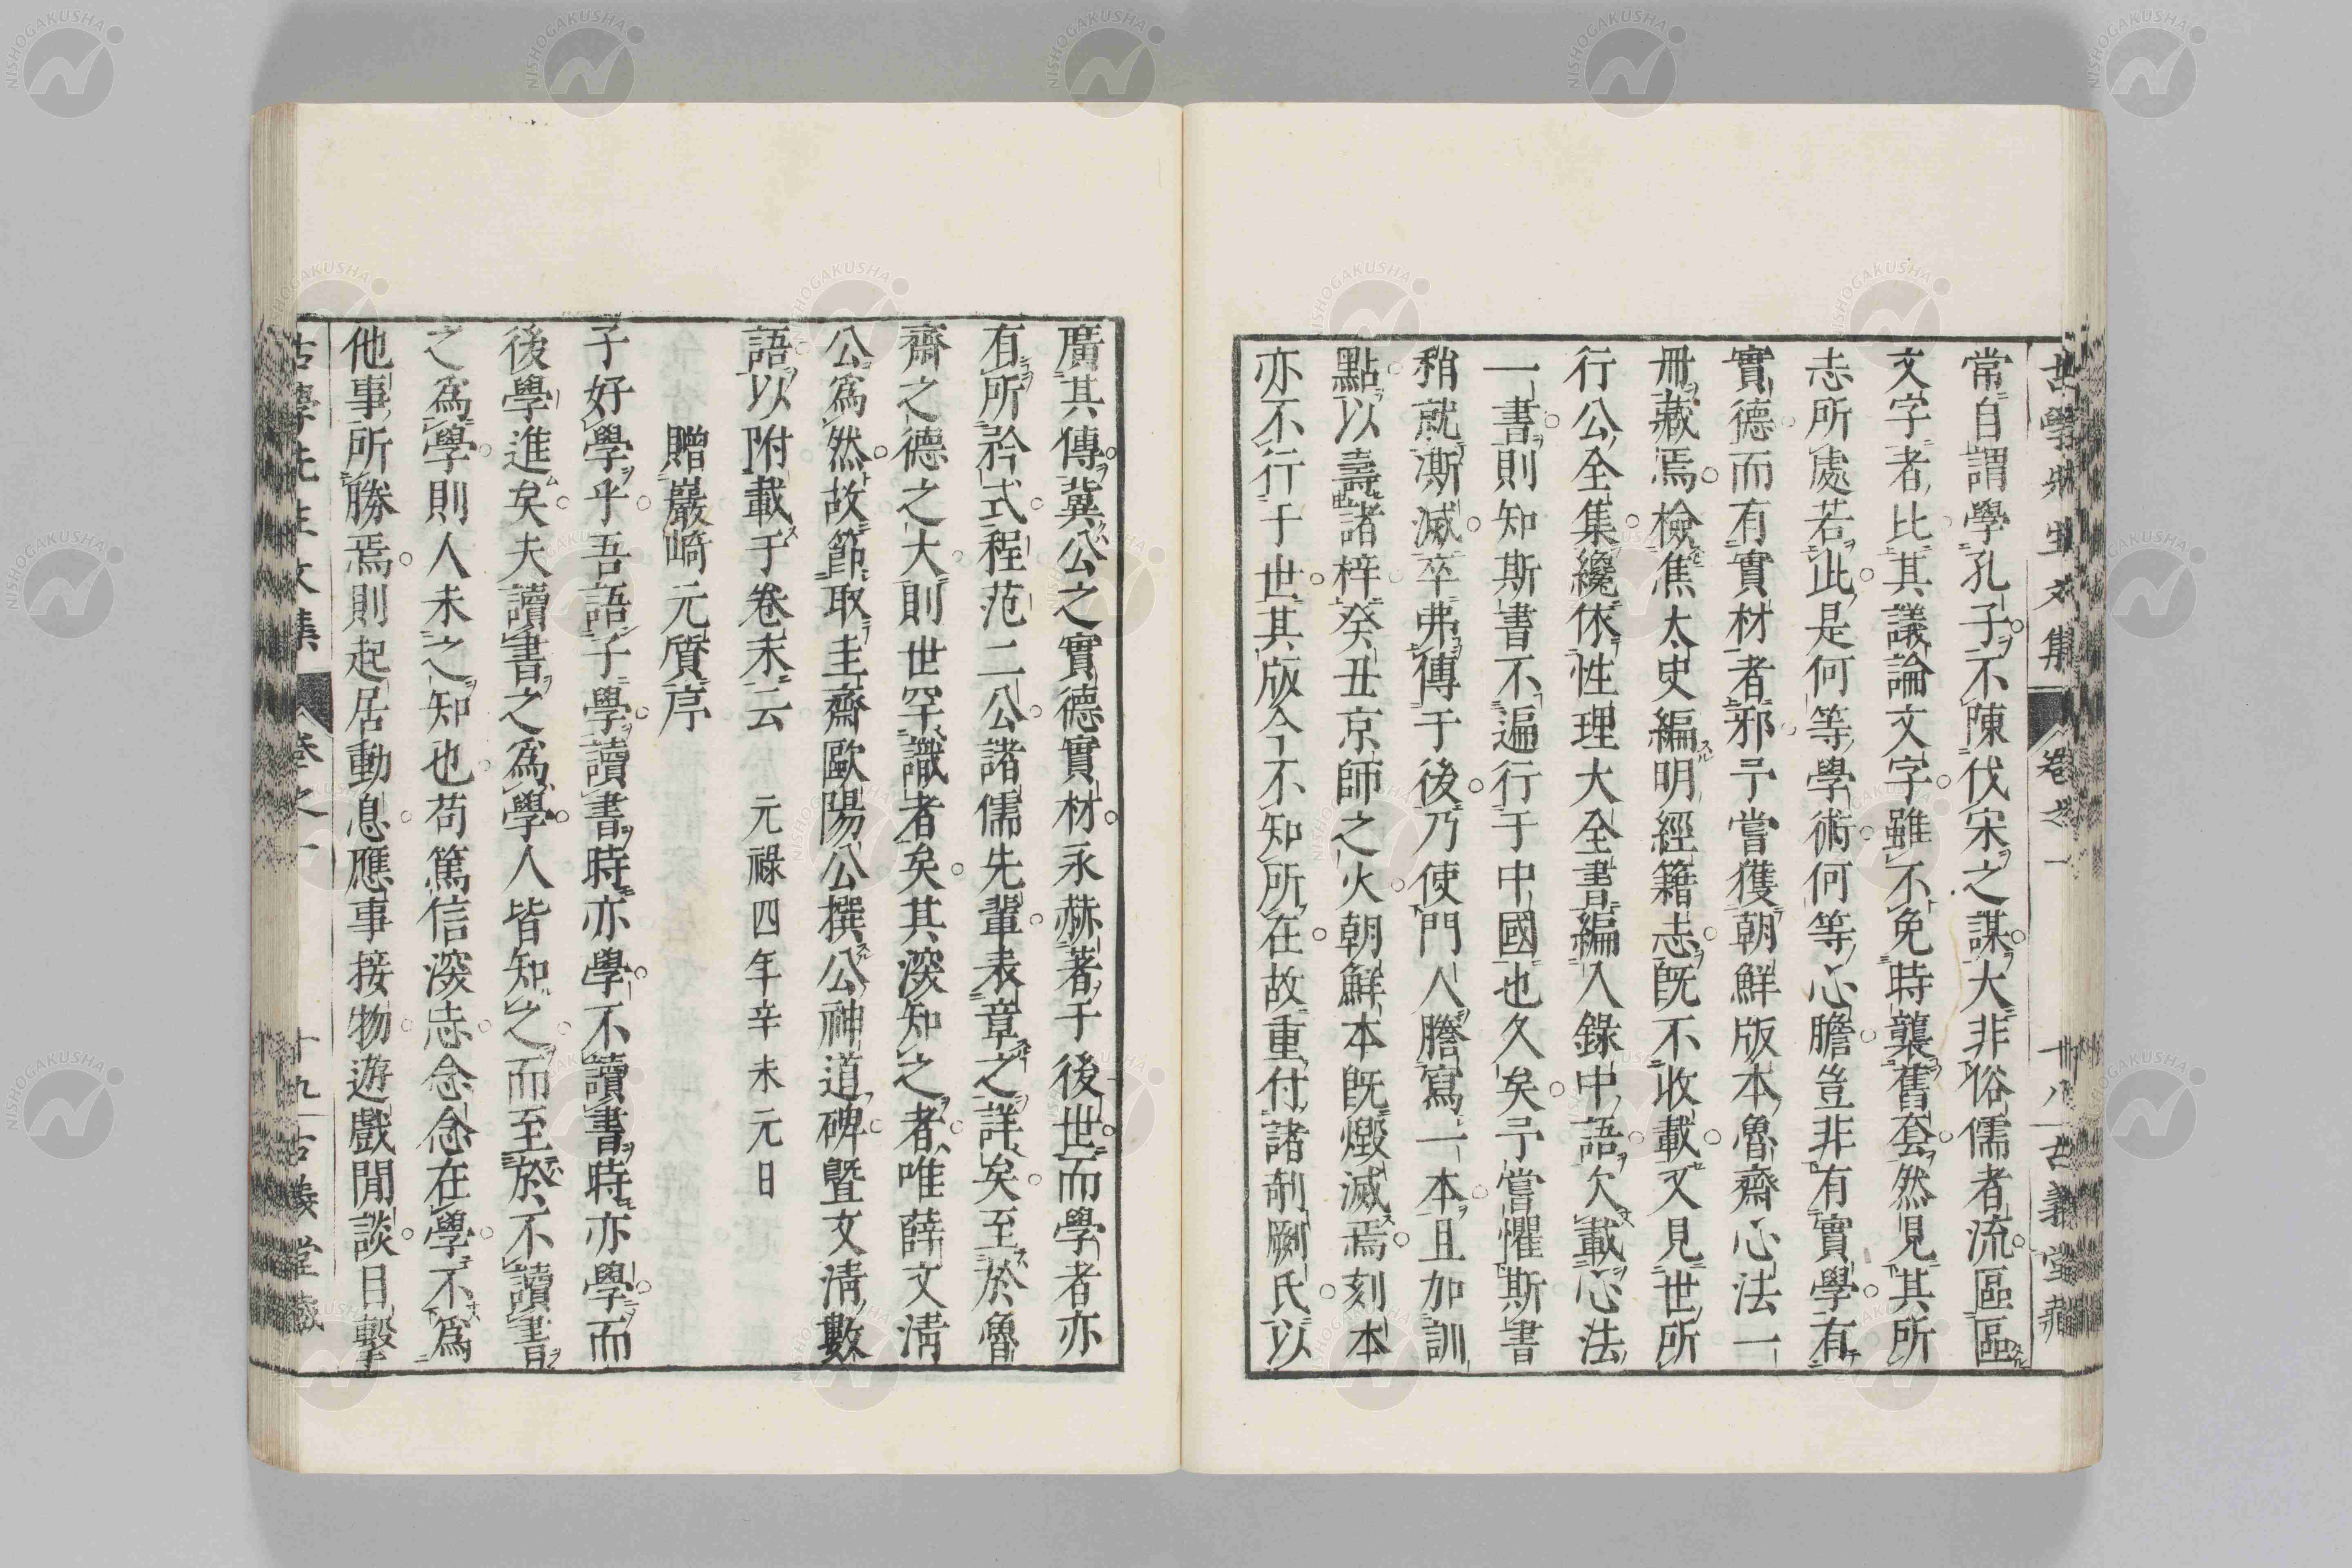 古學先生文集 卷之一 十八 古義堂藏
常自謂學孔子不陳伐宋之謀大非俗儒者流區區
文字者比其議論文字雖不免時襲舊套然見其所
志所處若此是何等學術何等心膽豈非有實學有
實德而有實材者邪予嘗獲朝鮮版本魯齋心法一
冊藏焉檢焦太史編明經籍志既不收載又見世所
行公全集纔依性理大全書編入錄中語欠載心法
一書則知斯書不遍行于中國也久矣予嘗懼斯書
稍就澌滅卒弗傳于後乃使門人謄寫一本且加訓
點以壽諸梓癸丑京師之火朝鮮本既燬滅焉刻本
亦不行于世其版今不知所在故重付諸剞劂氏以
廣其傳冀公之實德實材永赫著于後世而學者亦
有所矜式程范二公諸儒先輩表章之詳矣至於魯
齋之德之大則世罕識者矣其深知之者唯薛文清
公爲然故節取圭齋歐陽公撰公神道碑曁文清數
語以附載于卷末云 元祿四年辛未元日
贈巖崎元質序
子好學乎吾語子學讀書時亦學不讀書時亦學而
後學進矣夫讀書之爲學人皆知之而至於不讀書
之爲學則人未之知也苟篤信深志念念在學不爲
他事所勝焉則起居動息應事接物遊戲閒談目擊
古學先生文集 卷之一 十九 古義堂藏
NISHOGAKUSHA